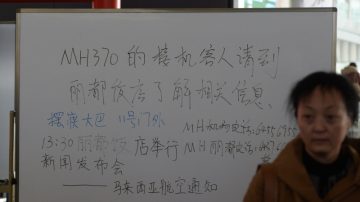 MH370的接机客人请到
丽都饭店了解相关信息
摆渡大巴 11号门外
13:30 丽都饭店举行
新闻发布会
MH机构电话:
MH丽都电话:
——马来西亚航空通知